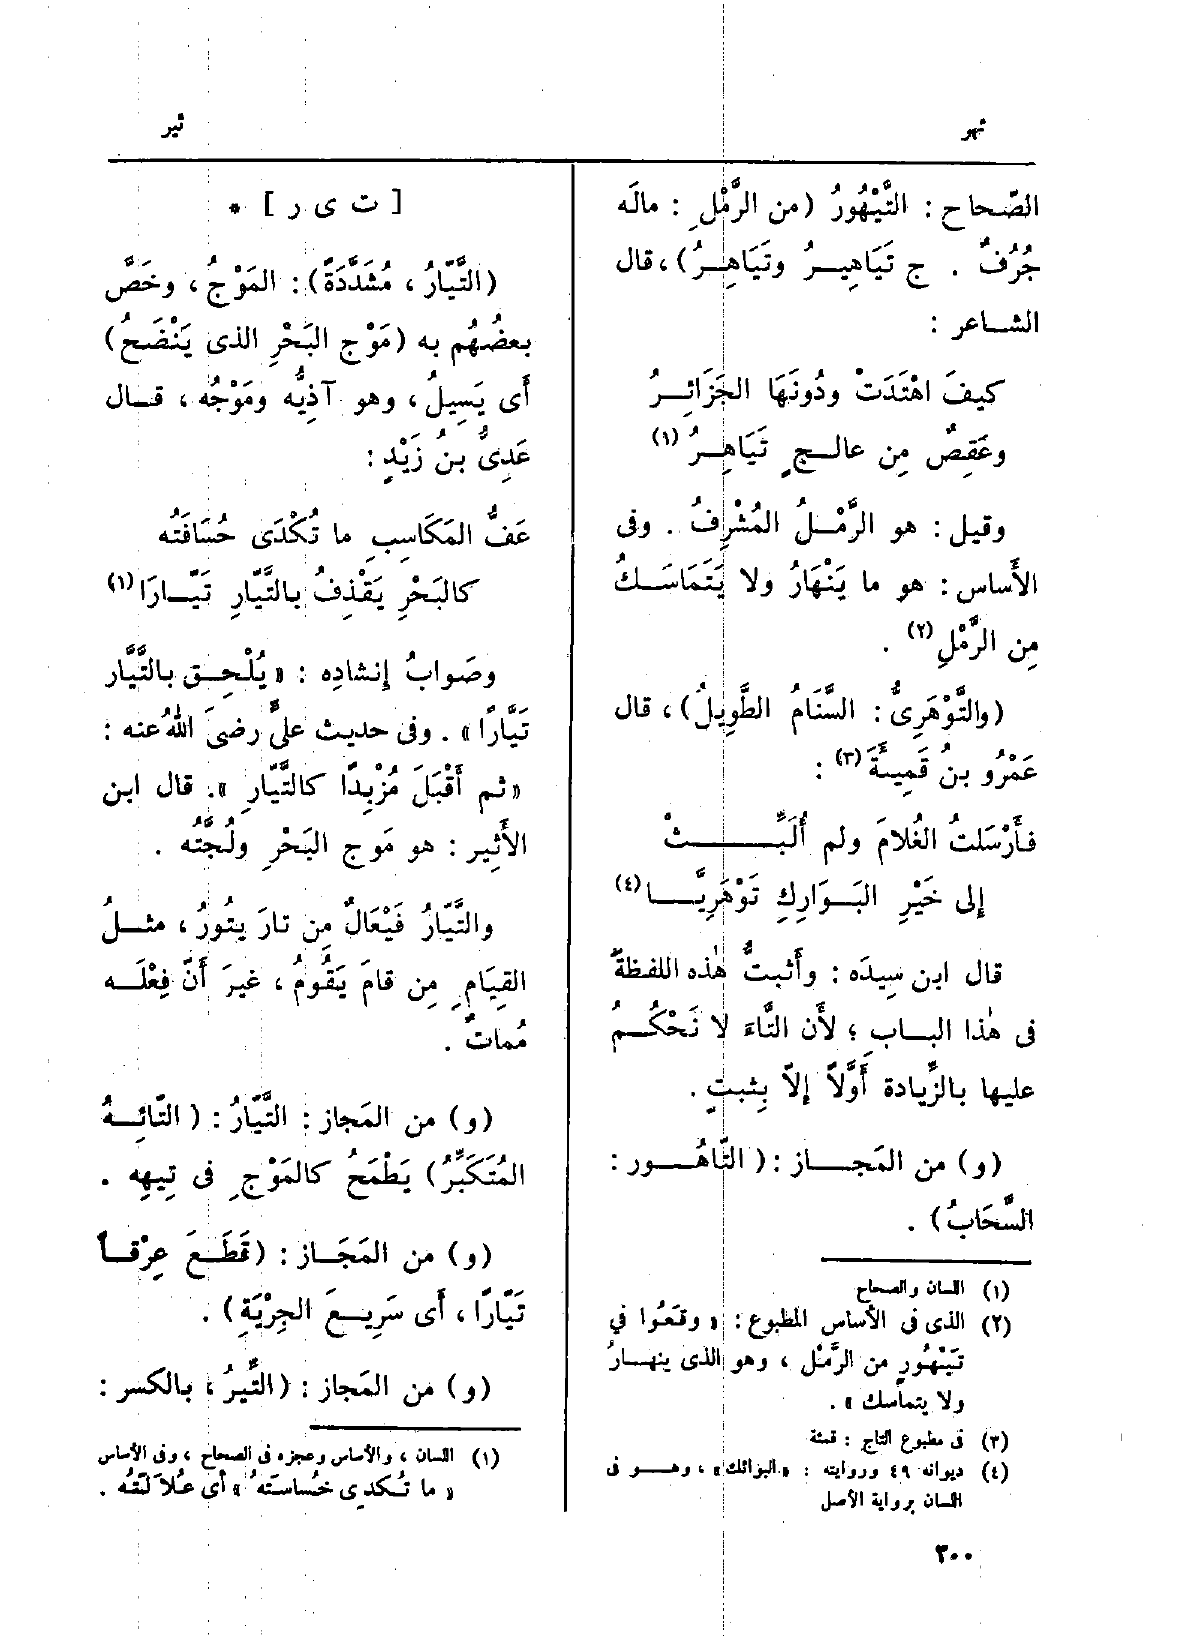 تهر
تير
الصّحاح : التَّيْهُورُ (من الرَّمْلِ : مالَه
جُرُفٌ . ج تَيَاهِيـرُ وتَيَاهِـرُ)، قال
الشاعر :
كيفَ اهْتَدَتْ ودُونَهَا الجَزَائِـرُ
وعَقِصٌ مِن عالـجٍ تَيَاهِـرُ (١)
وقيل : هو الرَّمْـلُ المُشْرِفُ . وفى
الأَساس : هو ما يَنْهَارُ ولا يَتَمَاسَـكُ
مِن الرَّمْلِ (٢) .
(والتَّوْهَرِىُّ : السَّنَامُ الطَّوِيلُ)، قال
عَمْرُو بنُ قَمِيئَةَ (٣) :
فأَرْسَلتُ الغُلامَ ولم أُلَبِّـــــثْ
إلى خَيْرِ البَـوَارِكِ تَوْهَرِيَّـــا (٤)
قال ابن سِيدَه : وأَثبتُّ هٰذه اللفظةَ
فى هٰذا البـابِ ؛ لأَن التّاءَ لا نَحْكُـمُ
عليها بالزِّيادة أَوَّلاً إلاّ بِثبتٍ .
(و) من المَجـــاز : ( التّاهُـــور :
السَّحَابُ) .
(١) اللسان والصحاح
(٢) الذى فى الأساس المطبوع : « وقَعُوا في
تَيْهُورٍ من الرَّمْل ، وهو الذى ينهـارُ
ولا يتماسك » .
(٣) فى مطبوع التاج : قمئة
(٤) ديوانه ٤٩ وروايته : «البوائك» ، وهــو فى
اللسان برواية الأصل
[ ت ى ر ] *
(التَّيّارُ ، مُشَدَّدَةً) : المَوْجُ ، وخَصَّ
بعضُهُم به (مَوْج البَحْرِ الذى يَنْضَحُ)
أَى يَسِيلُ ، وهو آذِيُّه ومَوْجُه ، قـال
عَدِىُّ بنُ زَيْدٍ :
عَفُّ المَكَاسِبِ ما تُكْدَى حُسَافَتُه
كالبَحْرِ يَقْذِفُ بالتَّيّارِ تَيّـارَا (١)
وصَوابُ إنشادِه : « يُلْحِـق بالتَّيَّار
تَيَّارًا» . وفى حديث علىٍّ رضىَ اللهُ عنه :
« ثم أَقْبَلَ مُزْبِدًا كالتَّيّارِ ». قال ابن
الأَثِير : هو مَوج البَحْرِ ولُجَّتُه .
والتَّيّارُ فَيْعَالٌ مِن تارَ يتُورُ ، مثـلُ
القِيَامِ مِن قامَ يَقُومُ ، غيرَ أَنّ فِعْلَـه
مُماتٌ .
(و) من المَجاز : التَّيّارُ : ( التّائِـهُ
المُتَكَبِّرُ) يَطْمَحُ كالمَوْجِ فى تِيهِه .
(و) من المَجَـاز : (قَطَـعَ عِرْقـاً
تَيّارًا ، أَى سَرِيـعَ الجِرْيَةِ) .
(و) من المَجاز : (التِّيرُ ، بالكسر :
(١) اللسان ، والأساس وعجزه فى الصحاح ، وفى الأساس
« ما تُـكدِى خُساستهُ » أى عُلاَلَتُه .
٣٠٠